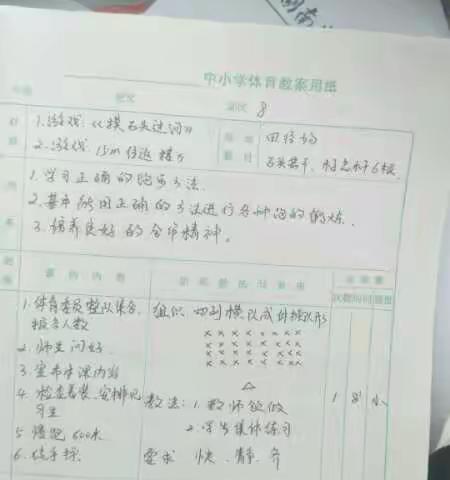 湖南
中小学体育教案用纸
年级 班次 课次 8
1.游戏:《摸石头过河》
2.游戏 15m往返接力
田径场
石头若干、标志杆6根
1.学习正确的跑步方法.
2.基本能用正确的方法进行各种跑的锻炼.
3.培养良好的合作精神。
课的内容
次数 时间 强度
1.体育委员整队集合,
报告人数
2.师生问好
3.宣布本课内容
4.检查着装、安排见
习生
5 慢跑 600米
6.徒手操
组织 四列横队成体操队形
× × × × × × × ×
× × × × × × × ×
× × × × × × × ×
× × × × × × × ×
△
教法: 1.教师领做
2.学生集体练习
要求 快、静、齐
1 8' 小